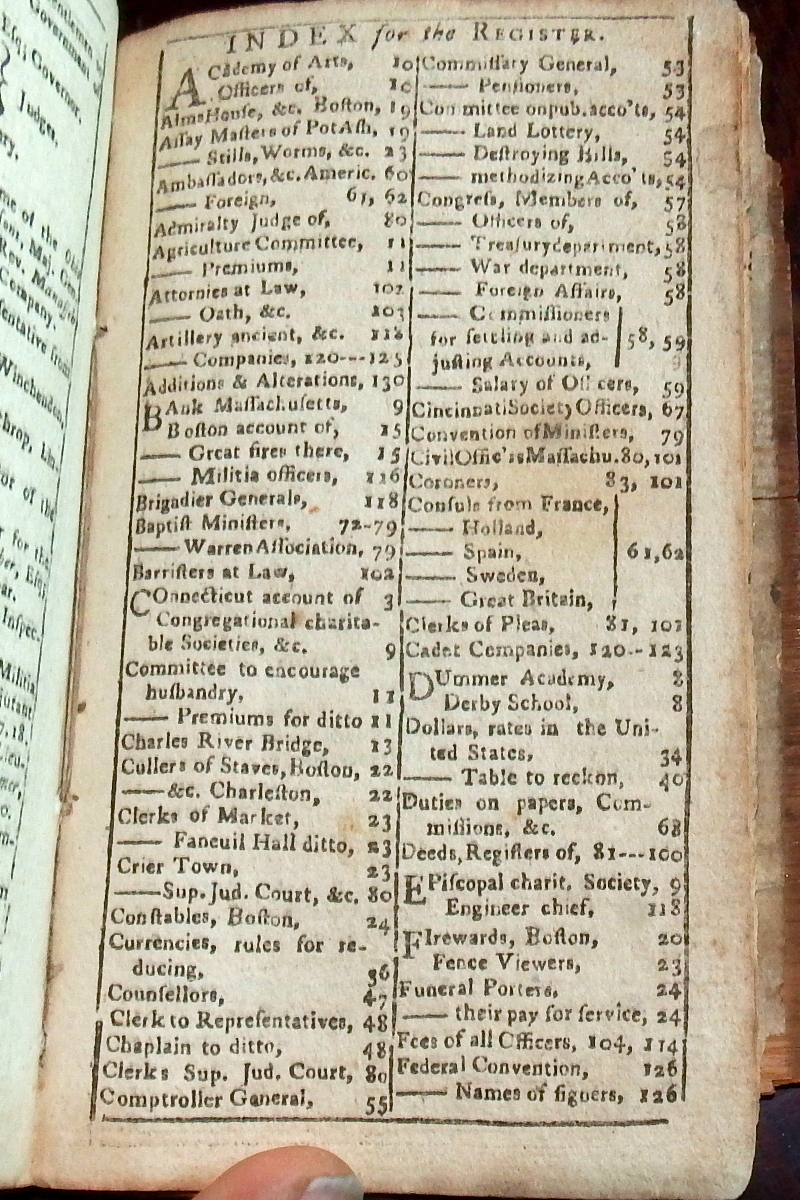 entlemen of
Government of
Esq; Governor.
Judges.
me of the
Rev.
Company.
sentative from
Winchendon.
throp,
or of the
for the
Inspec-
Militia
17.18.
INDEX for the REGISTER.
ACademy of Arts, 10
Officers of, 10
AlmsHouse, &c. Boston, 19
Assay Masters of PotAsh, 19
—— Stills, Worms, &c. 23
Ambassadors, &c. Americ. 60
—— Foreign, 61, 62
Admiralty Judge of, 80
Agriculture Committee, 11
—— Premiums, 11
Attornies at Law, 102
—— Oath, &c. 103
Artillery ancient, &c. 118
—— Companies, 120---125
Additions & Alterations, 130
BAnk Massachusetts, 9
Boston account of, 15
—— Great fires there, 15
—— Militia officers, 116
Brigadier Generals, 118
Baptist Ministers, 72-79
—— Warren Association, 79
Barristers at Law, 102
COnnecticut account of 3
Congregational charita-
ble Societies, &c. 9
Committee to encourage
husbandry, 11
—— Premiums for ditto 11
Charles River Bridge, 13
Cullers of Staves, Boston, 22
—— &c. Charleston, 22
Clerks of Market, 23
—— Faneuil Hall ditto, 23
Crier Town, 23
—— Sup. Jud. Court, &c. 80
Constables, Boston, 24
Currencies, rules for re-
ducing, 36
Counsellors, 47
Clerk to Representatives, 48
Chaplain to ditto, 48
Clerks Sup. Jud. Court, 80
Comptroller General, 55
Commissary General, 53
—— Pensioners, 53
Committee on pub. acco'ts, 54
—— Land Lottery, 54
—— Destroying Bills, 54
—— methodizing Acco'ts, 54
Congress, Members of, 57
—— Officers of, 58
—— Treasury department, 58
—— War department, 58
—— Foreign Affairs, 58
—— Commissioners
for settling and ad- 58, 59
justing Accounts,
—— Salary of Officers, 59
Cincinnati Society Officers, 67
Convention of Ministers, 79
Civil Offic'rs Massachu. 80, 101
Coroners, 83, 101
Consuls from France,
—— Holland,
—— Spain, 61,62
—— Sweden,
—— Great Britain,
Clerks of Pleas, 81, 101
Cadet Companies, 120--123
DUmmer Academy, 8
Derby School, 8
Dollars, rates in the Uni-
ted States, 34
—— Table to reckon, 40
Duties on papers, Com-
missions, &c. 68
Deeds, Registers of, 81---100
EPiscopal charit. Society, 9
Engineer chief, 118
FIrewards, Boston, 20
Fence Viewers, 23
Funeral Porters, 24
—— their pay for service, 24
Fees of all Officers, 104, 114
Federal Convention, 126
—— Names of signers, 126